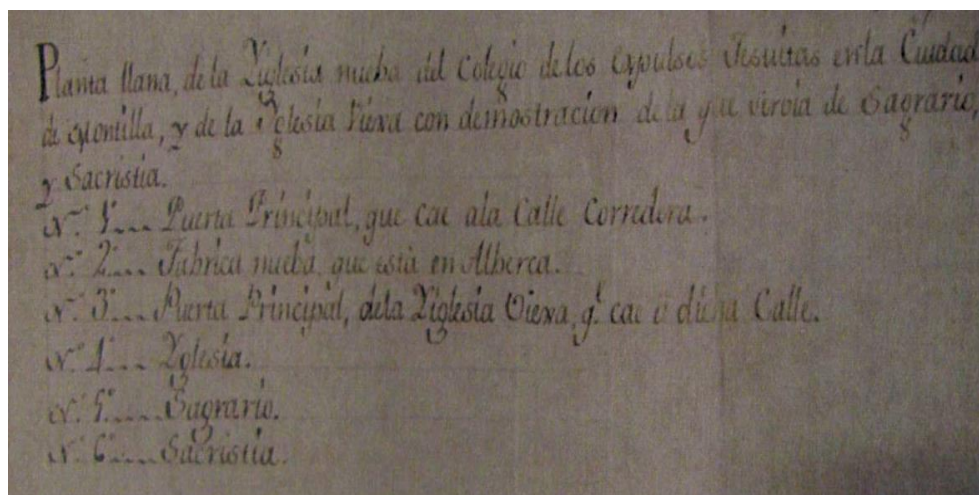 Planta llana, de la Yiglesia nueba del Colegio de los Expulsos Jesuitas en la Ciudad
de Montilla, y de la Yglesia Viexa con demostracion de la que servia de Sagrario,
y Sacristia.
N.º 1.... Puerta Principal, que cae ala Calle Corredera.
N.º 2.... Fabrica nueba, que está en Alberca.
N.º 3.... Puerta Principal, dela Yiglesia Viexa, q.e cae á dicha Calle.
N.º 4.... Yglesia.
N.º 5.... Sagrario.
N.º 6.... Sacristia.